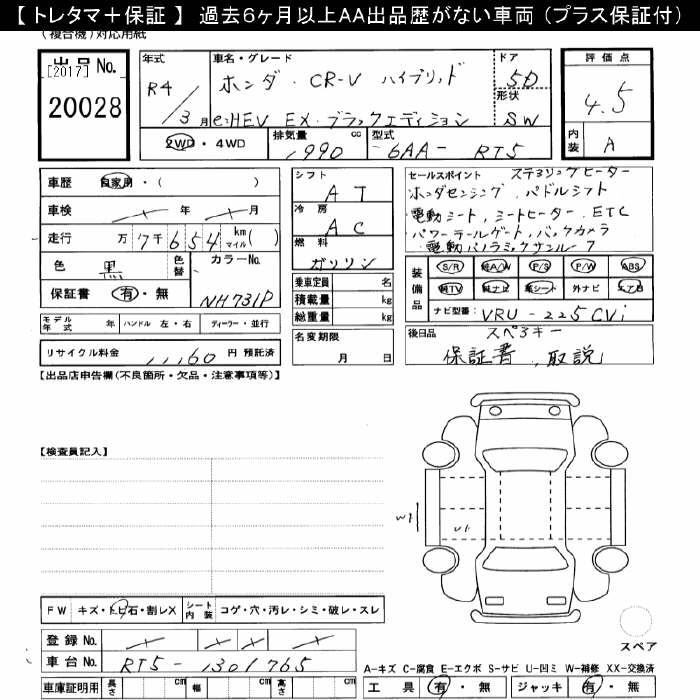 【 トレタマ＋保証 】 過去6ヶ月以上AA出品歴がない車両（プラス保証付）
（複合機）対応用紙
出品 No. [2017]
20028
年式 R4 / 3月
車名・グレード
ホンダ・CR-V ハイブリッド
e:HEV EX・ブラックエディション
ドア 5D
形状 SW
評価点 4.5
内装 A
2WD ・ 4WD
排気量 1990 cc
型式 6AA- RT5
車歴 自家用・（ ）
車検 年 月
走行 万 7千 6 5 4 km マイル( )
色 黒 色替
カラーNo. NH731P
保証書 有・無
モデル年式 年 ハンドル 左・右 ディーラー・並行
リサイクル料金 11,160 円 預託済
シフト AT
冷房 AC
燃料 ガソリン
乗車定員 名
積載量 kg
総重量 kg
名変期限 月 日
セールスポイント ステアリングヒーター
ホンダセンシング、パドルシフト
電動シート、シートヒーター、ETC
パワーテールゲート、バックカメラ
電動パノラミックサンルーフ
装備品
S/R 純A/W P/S P/W ABS
純TV 純ナビ 革シート 外ナビ エアB
ナビ型番: VRU-225CVi
後日品 スペアキー
保証書、取説
【出品店申告欄(不良箇所・欠品・注意事項等)】
【検査員記入】
W1
U1
FW キズ・トビ石・割レX
シート内装 コゲ・穴・汚レ・シミ・破レ・スレ
登録 No.
車台 No. RT5-1301765
車庫証明用 長さ cm 幅 cm 高さ cm
スペア
A-キズ C-腐食 E-エクボ S-サビ U-凹ミ W-補修 XX-交換済
工具 有・無 ジャッキ 有・無